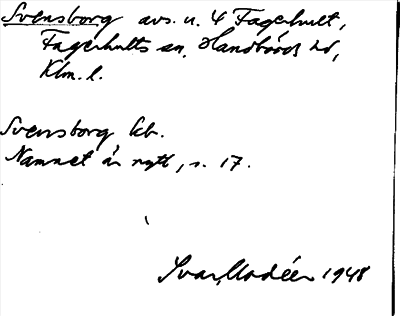 Svensborg avs. u. 4 Fagerhult,
Fagerhults sn, Handbörds hd,
Klm. l.
Svensborg kb.
Namnet är nytt, s. 17.
Ivar Modéer 1948